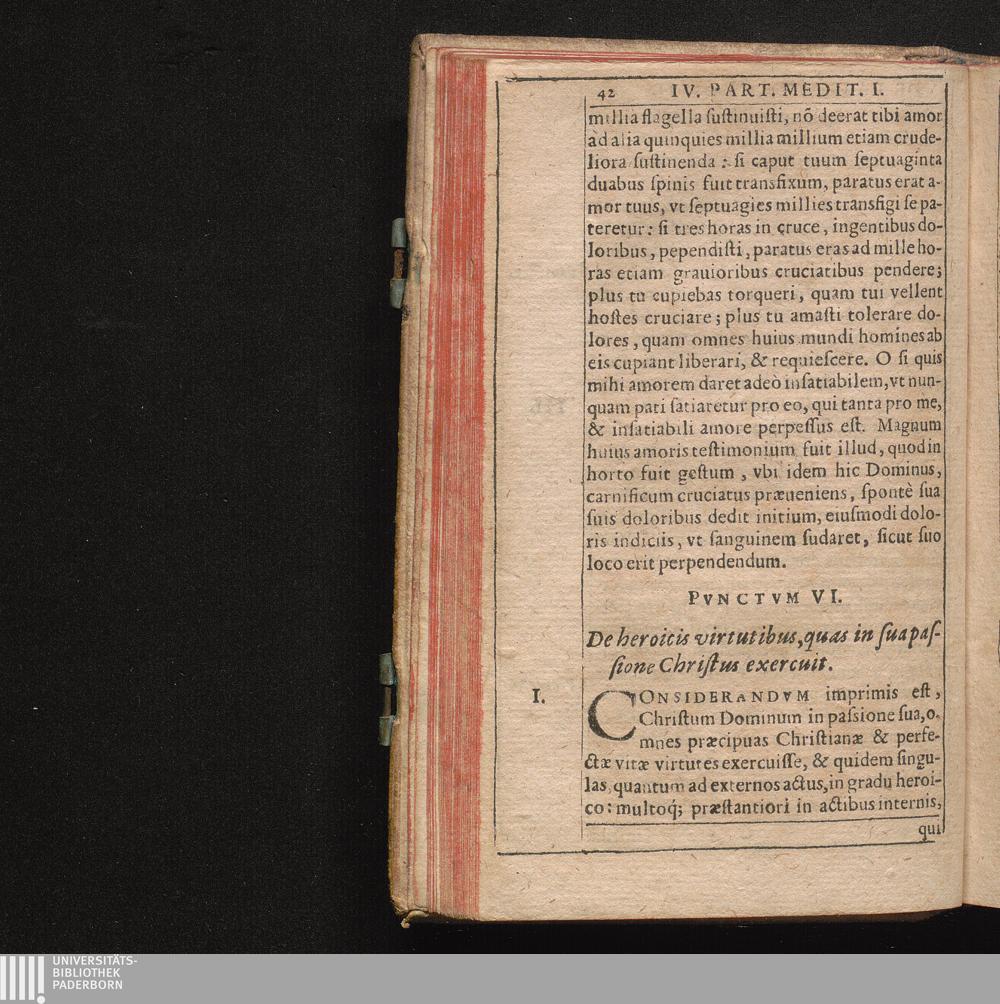 42 IV. PART. MEDIT. I.
millia flagella ſuſtinuiſti, nõ deerat tibi amor
ad alia quinquies millia millium etiam crude-
liora ſuſtinenda : ſi caput tuum ſeptuaginta
duabus ſpinis fuit transfixum, paratus erat a-
mor tuus, vt ſeptuagies millies transfigi ſe pa-
teretur: ſi tres horas in cruce, ingentibus do-
loribus, pependiſti, paratus eras ad mille ho-
ras etiam grauioribus cruciatibus pendere;
plus tu cupiebas torqueri, quam tui vellent
hoſtes cruciare; plus tu amaſti tolerare do-
lores, quam omnes huius mundi homines ab
eis cupiant liberari, & requieſcere. O ſi quis
mihi amorem daret adeò inſatiabilem, vt nun-
quam pati ſatiaretur pro eo, qui tanta pro me,
& inſatiabili amore perpeſſus eſt. Magnum
huius amoris teſtimonium fuit illud, quod in
horto fuit geſtum, vbi idem hic Dominus,
carnificum cruciatus præueniens, ſpontè ſua
ſuis doloribus dedit initium, eiuſmodi dolo-
ris indiciis, vt ſanguinem ſudaret, ſicut ſuo
loco erit perpendendum.
PVNCTVM VI.
De heroicis virtutibus, quas in ſua paſ-
ſione Chriſtus exercuit.
I. CONSIDERANDVM imprimis eſt,
Chriſtum Dominum in paſsione ſua, o-
mnes præcipuas Chriſtianæ & perfe-
ctæ vitæ virtutes exercuiſſe, & quidem ſingu-
las, quantum ad externos actus, in gradu heroi-
co: multoq́; præſtantiori in actibus internis,
qui
UNIVERSITÄTS-
BIBLIOTHEK
PADERBORN